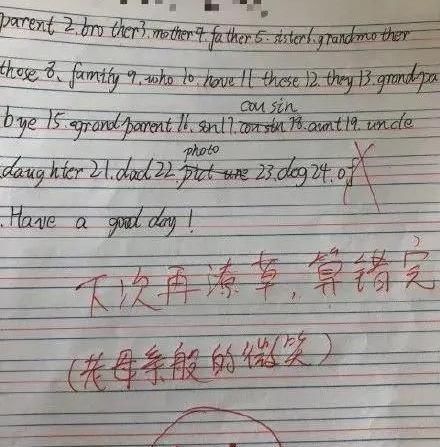 parent 2. brother 3. mother 4. father 5. sister 6. grandmother
those 8. family 9. who 10. have 11 these 12. they 13. grandpa
cousin
bye 15. grandparent 16. son 17. cousin 18. aunt 19. uncle
photo
daughter 21. dad 22 picture 23. dog 24. of
. Have a good day!
下次再潦草,算错完
(老母亲般的微笑)